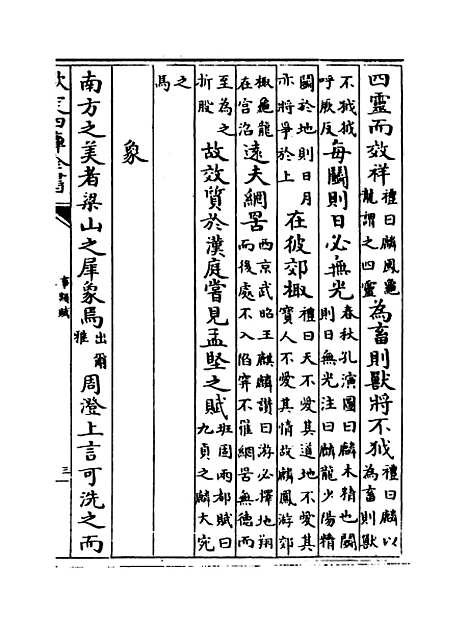 四靈而效祥禮曰麟鳳龜龍謂之四靈為畜則獸將不狘禮曰麟以為畜則獸
不狘狘呼厥反每鬭則日必無光春秋孔演圖曰麟木精也鬭則日無光注曰麟龍少陽精
鬭於地則日月亦將爭於上在彼郊棷禮曰天不愛其道地不愛其寳人不愛其情故麟鳳游郊
棷龜龍在宫沼遠夫網罟西京武昭王麒麟讃曰游必擇地翔而後處不入陷穽不罹網罟無德而
至為之折股故效質於漢庭嘗見孟堅之賦班固兩都賦曰九貞之麟大宛
之馬
象
南方之美者梁山之犀象焉出爾雅周澄上言可洗之而
欽定四庫全書
事類賦
三